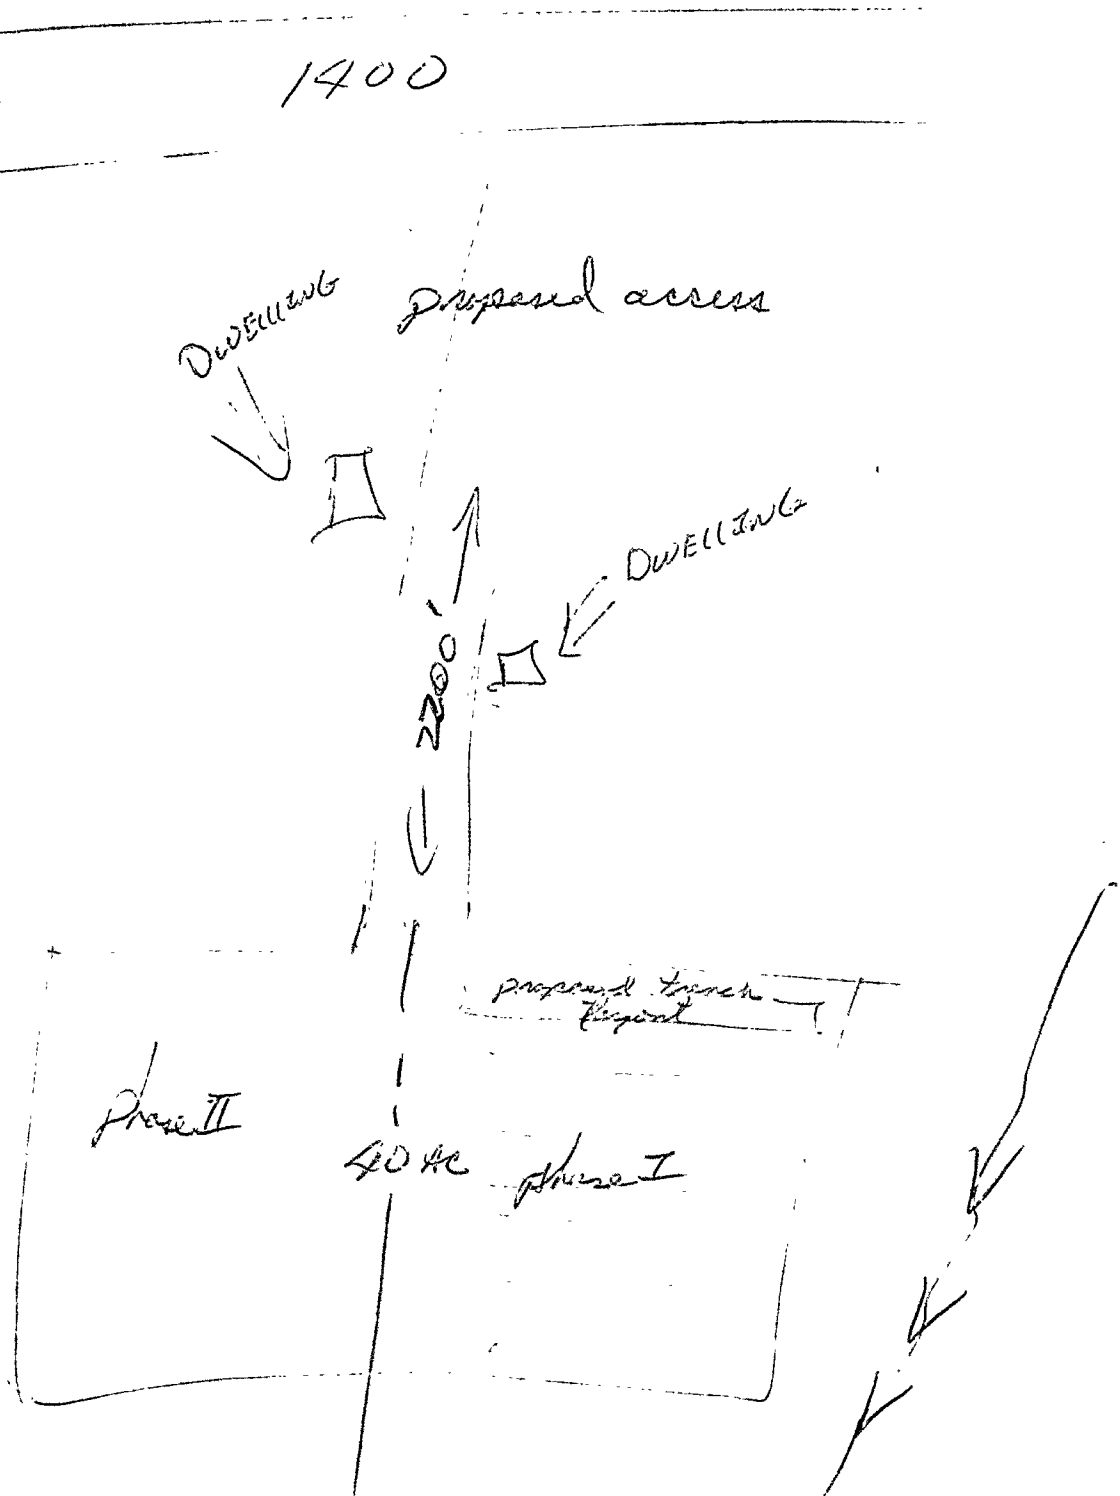 1400
DWELLING
proposed access
DWELLING
2200'
proposed trench
layout
phase II
40 AC
phase I